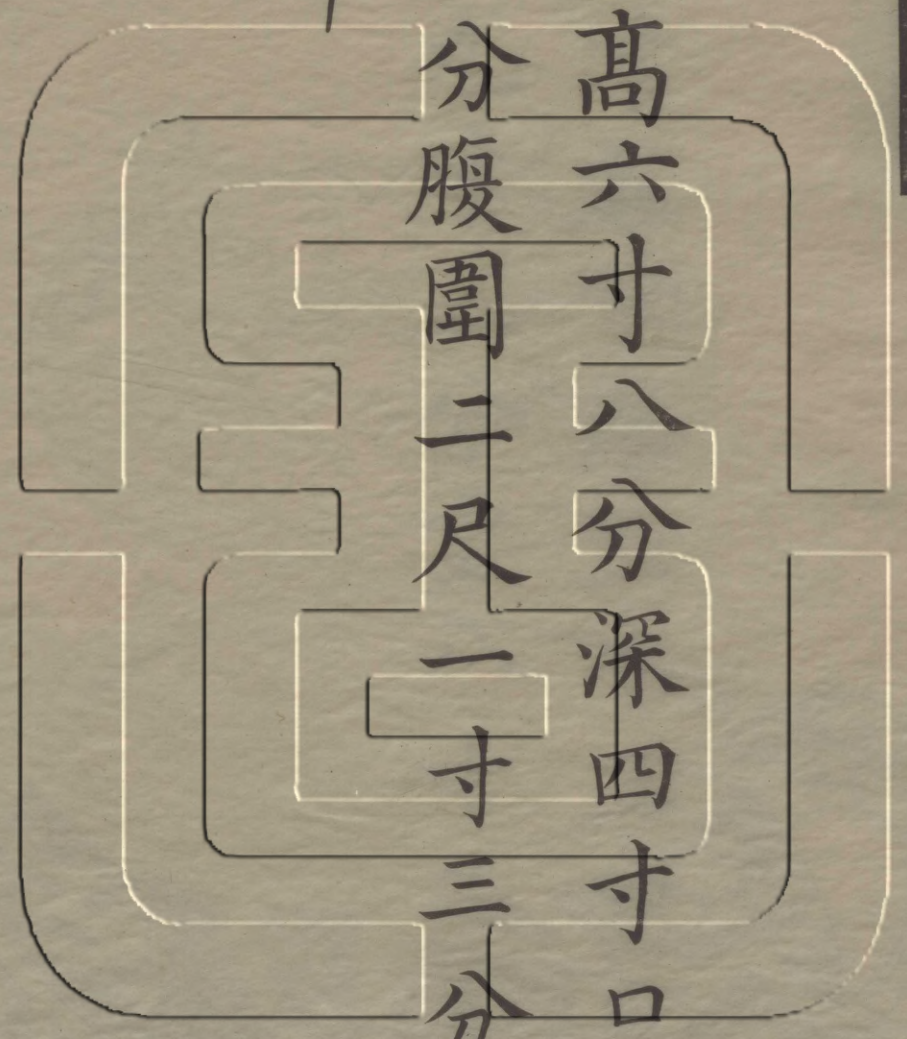 髙六寸八分深四寸口
分腹圍二尺一寸三分